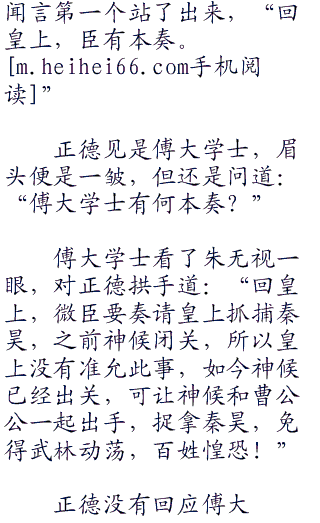 闻言第一个站了出来，“回
皇上，臣有本奏。
[m.heihei66.com手机阅
读]”
正德见是傅大学士，眉
头便是一皱，但还是问道：
“傅大学士有何本奏？”
傅大学士看了朱无视一
眼，对正德拱手道：“回皇
上，微臣要奏请皇上抓捕秦
昊，之前神候闭关，所以皇
上没有准允此事，如今神候
已经出关，可让神候和曹公
公一起出手，捉拿秦昊，免
得武林动荡，百姓惶恐！”
正德没有回应傅大